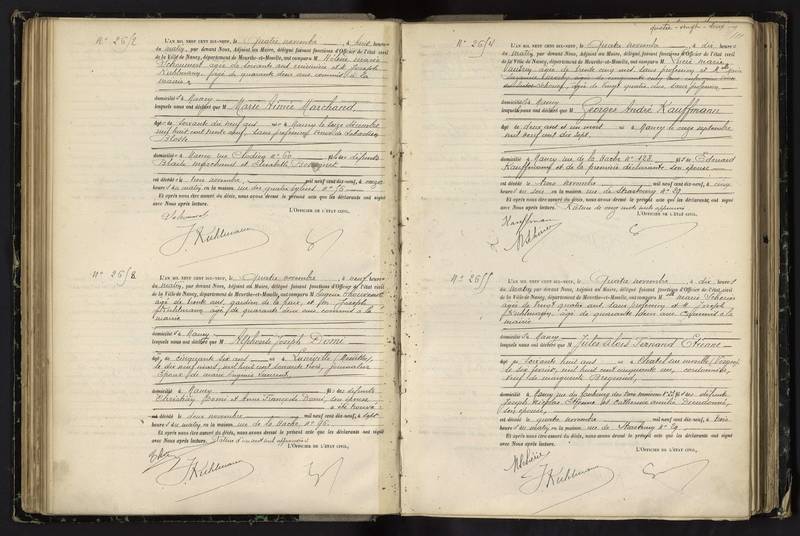 N° 2652
L'AN MIL NEUF CENT DIX-NEUF, le Quatre novembre, à huit heures
du matin, par devant Nous, Adjoint au Maire, délégué faisant fonctions d'Officier de l'état civil
de la Ville de Nancy, département de Meurthe-et-Moselle, ont comparu M Hélène Marie
agée de soixante ans et M. Joseph
Kuhlmann, âgé de quarante deux ans commis à la
mairie
domicilié s à Nancy
lesquels nous ont déclaré que M Marie Aimée Marchand
âgée de soixante dix neuf ans née à Nancy le seize décembre
mil huit cent trente neuf, sans profession, veuve de Sébastien
domiciliée à Nancy rue Clodion n° 60 fille des défunts
Blaise Marchand et Elisabeth
est décédée le trois novembre mil neuf cent dix-neuf, à onze
heures du matin, en la maison rue des quatre églises n° 75
Et après nous être assuré du décès, nous avons dressé le présent acte que les déclarants ont signé
avec Nous après lecture.
L'OFFICIER DE L'ÉTAT CIVIL,
J. Kuhlmann
N° 2653
L'AN MIL NEUF CENT DIX-NEUF, le Quatre novembre, à neuf heures
du matin, par devant Nous, Adjoint au Maire, délégué faisant fonctions d'Officier de l'état civil
de la Ville de Nancy, département de Meurthe-et-Moselle, ont comparu M Eugène
âgé de trente ans, gardien de la paix, et M. Joseph
Kuhlmann, âgé de quarante deux ans commis à la
mairie
domicilié s à Nancy
lesquels nous ont déclaré que M Alphonse Joseph Domi
âgé de cinquante six ans né à Lunéville (Meurthe)
le dix neuf mars, mil huit cent soixante trois, journalier
époux de Marie Eugénie Vincent,
domicilié à Nancy fils des défunts
Domi et Anne Françoise, son épouse
a été trouvé
est décédé le deux novembre mil neuf cent dix-neuf, à sept
heures du matin, en la maison rue de la Hache n° 96.
Et après nous être assuré du décès, nous avons dressé le présent acte que les déclarants ont signé
avec Nous après lecture.
L'OFFICIER DE L'ÉTAT CIVIL,
J. Kuhlmann
quatre-vingt-deux
N° 2654
L'AN MIL NEUF CENT DIX-NEUF, le Quatre novembre, à dix heures
du matin, par devant Nous, Adjoint au Maire, délégué faisant fonctions d'Officier de l'état civil
de la Ville de Nancy, département de Meurthe-et-Moselle, ont comparu M Lucie Marie
âgée de trente cinq ans, sans profession et Mlle Marie
âgée de vingt quatre ans, sans profession
domicilié s à Nancy
lesquels nous ont déclaré que M Georges André Kauffmann
âgé de deux ans et un mois né à Nancy le onze septembre
mil neuf cent dix sept,
domicilié à Nancy rue de la Hache n° 128 fils de Edouard
Kauffmann et de la première déclarante son épouse
est décédé le trois novembre mil neuf cent dix-neuf, à cinq
heures du soir, en la maison rue de Strasbourg n° 29
Et après nous être assuré du décès, nous avons dressé le présent acte que les déclarants ont signé
avec Nous après lecture.
L'OFFICIER DE L'ÉTAT CIVIL,
Kauffmann
N° 2655
L'AN MIL NEUF CENT DIX-NEUF, le Quatre novembre, à dix heures
du matin, par devant Nous, Adjoint au Maire, délégué faisant fonctions d'Officier de l'état civil
de la Ville de Nancy, département de Meurthe-et-Moselle, ont comparu M lle Marie
âgée de vingt quatre ans, sans profession et M. Joseph
Kuhlmann, âgé de quarante deux ans commis à la
mairie
domicilié s à Nancy
lesquels nous ont déclaré que M Jules Aloïs Fernand Etienne
âgé de soixante huit ans né à Chatel sur Moselle (Vosges)
le six février, mil huit cent cinquante un, cordonnier,
veuf de Marguerite
domicilié à Nancy rue du Faubourg des Trois maisons fils des défunts
Joseph Nicolas Etienne et Catherine Dieudonné,
son épouse,
est décédé le quatre novembre mil neuf cent dix-neuf, à trois
heures du matin, en la maison rue de Strasbourg n° 29
Et après nous être assuré du décès, nous avons dressé le présent acte que les déclarants ont signé
avec Nous après lecture.
L'OFFICIER DE L'ÉTAT CIVIL,
J. Kuhlmann